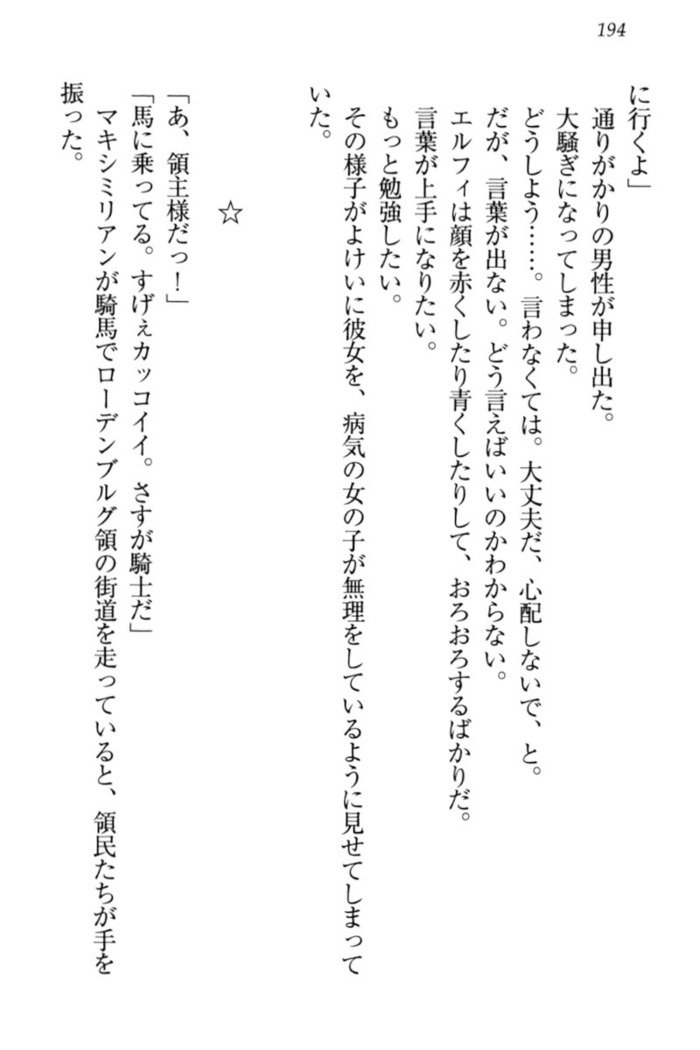 194
に行くよ」
通りがかりの男性が申し出た。
大騒ぎになってしまった。
どうしよう……。言わなくては。大丈夫だ、心配しないで、と。
だが、言葉が出ない。どう言えばいいのかわからない。
エルフィは顔を赤くしたり青くしたりして、おろおろするばかりだ。
言葉が上手になりたい。
もっと勉強したい。
その様子がよけいに彼女を、病気の女の子が無理をしているように見せてしまって
いた。
☆
「あ、領主様だっ！」
「馬に乗ってる。すげぇカッコイイ。さすが騎士だ」
マキシミリアンが騎馬でローデンブルグ領の街道を走っていると、領民たちが手を
振った。